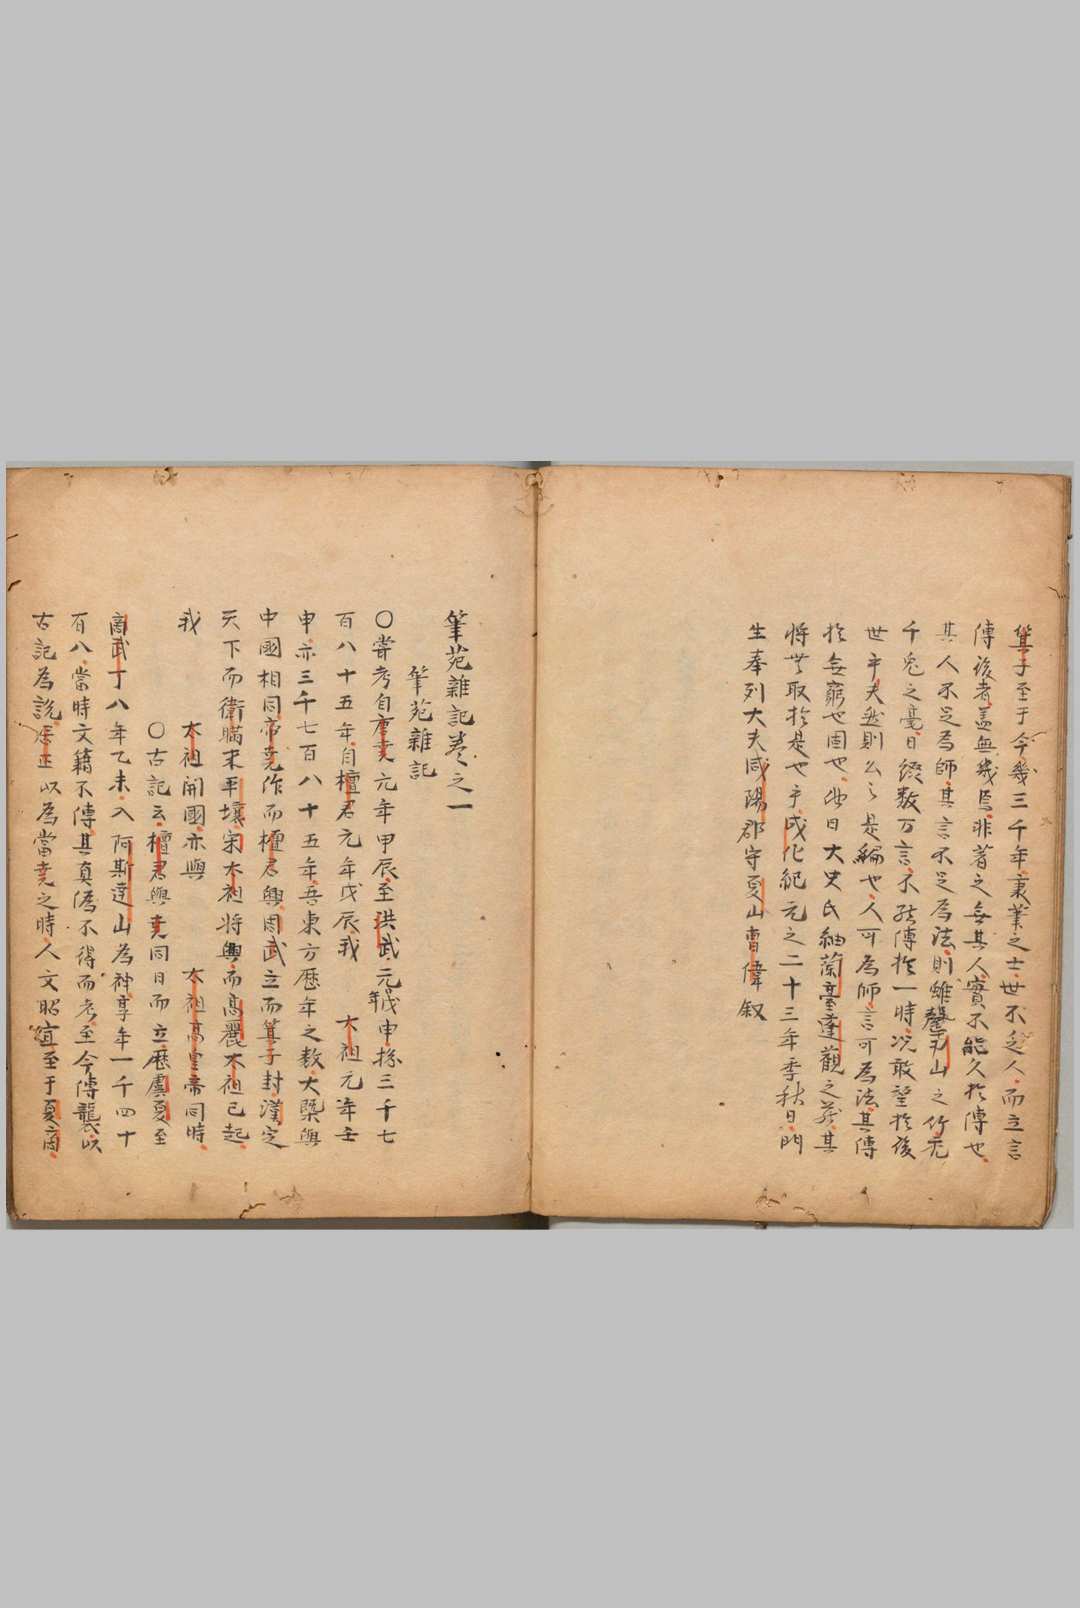 箕子至于今幾三千年秉筆之士世不乏人而立言
傳後者盖無幾焉非著之無其人實不能久於傳也
其人不足為師其言不足為法則雖罄刀山之竹禿
千兎之毫日綴数万言不能傳於一時况敢望於後
世乎夫然則公之是編也人可為師言可為法其傳
於無窮也固也他日大史氏紬蘭臺蓬觀之藏其
將無取於是也乎成化紀元之二十三年季秋日門
生奉列大夫咸陽郡守夏山曹偉叙
筆苑雜記卷之一
筆苑雜記
〇嘗考自唐堯元年甲辰至洪武元年戊申捴三千七
百八十五年自檀君元年戊辰我 太祖元年壬
申亦三千七百八十五年吾東方歷年之数大槩與
中國相同帝堯作而檀君興周武立而箕子封漢定
天下而衛瞞来平壤宋太祖将興而高麗太祖已起
我 太祖開國亦與 太祖高皇帝同時
〇古記云檀君與堯同日而立歷虞夏至
商武丁八年乙未入阿斯達山為神享年一千四十
有八當時文籍不傳其真偽不得而考至今傳襲以
古記為說 正以為當堯之時人文昭宣至于夏商